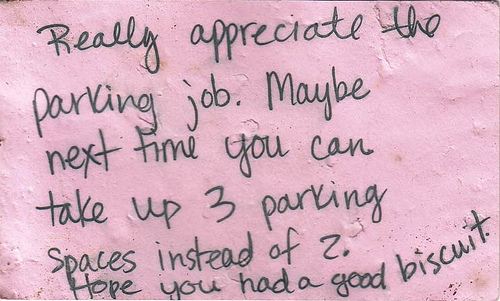 Really appreciate the
parking job. Maybe
next time you can
take up 3 parking
spaces instead of 2.
Hope you had a good biscuit.